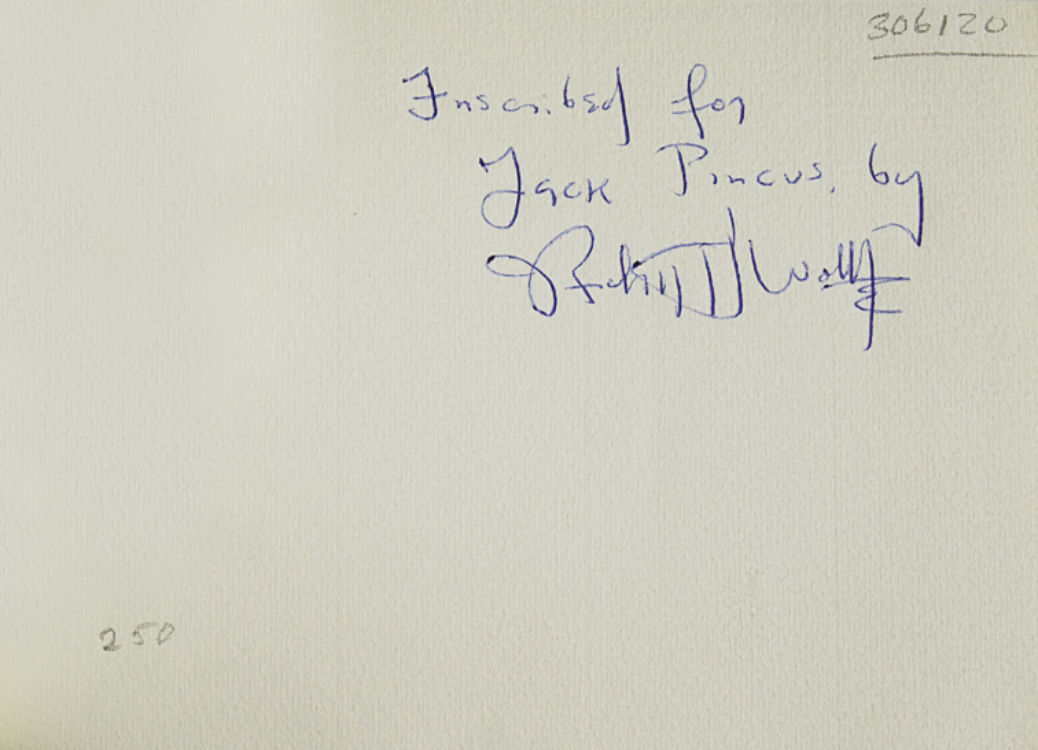 306120
Inscribed for
Jack Pincus, by
Wolff
250